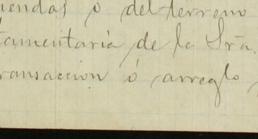 iendas o del terreno
tamentaria de la Sra.
ransaccion ó arreglo,